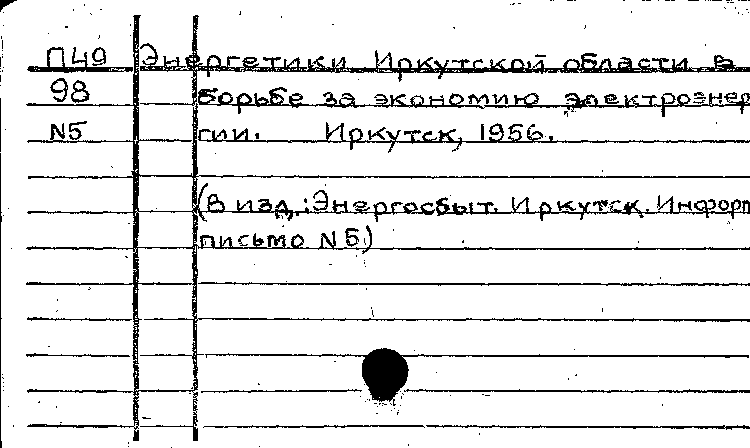 П49 Энергетики Иркутской области в
98 борьбе за экономию электроэнер
N5 гии. Иркутск, 1956.
(в изд.: Энергосбыт. Иркутск. Информ
письмо N5)